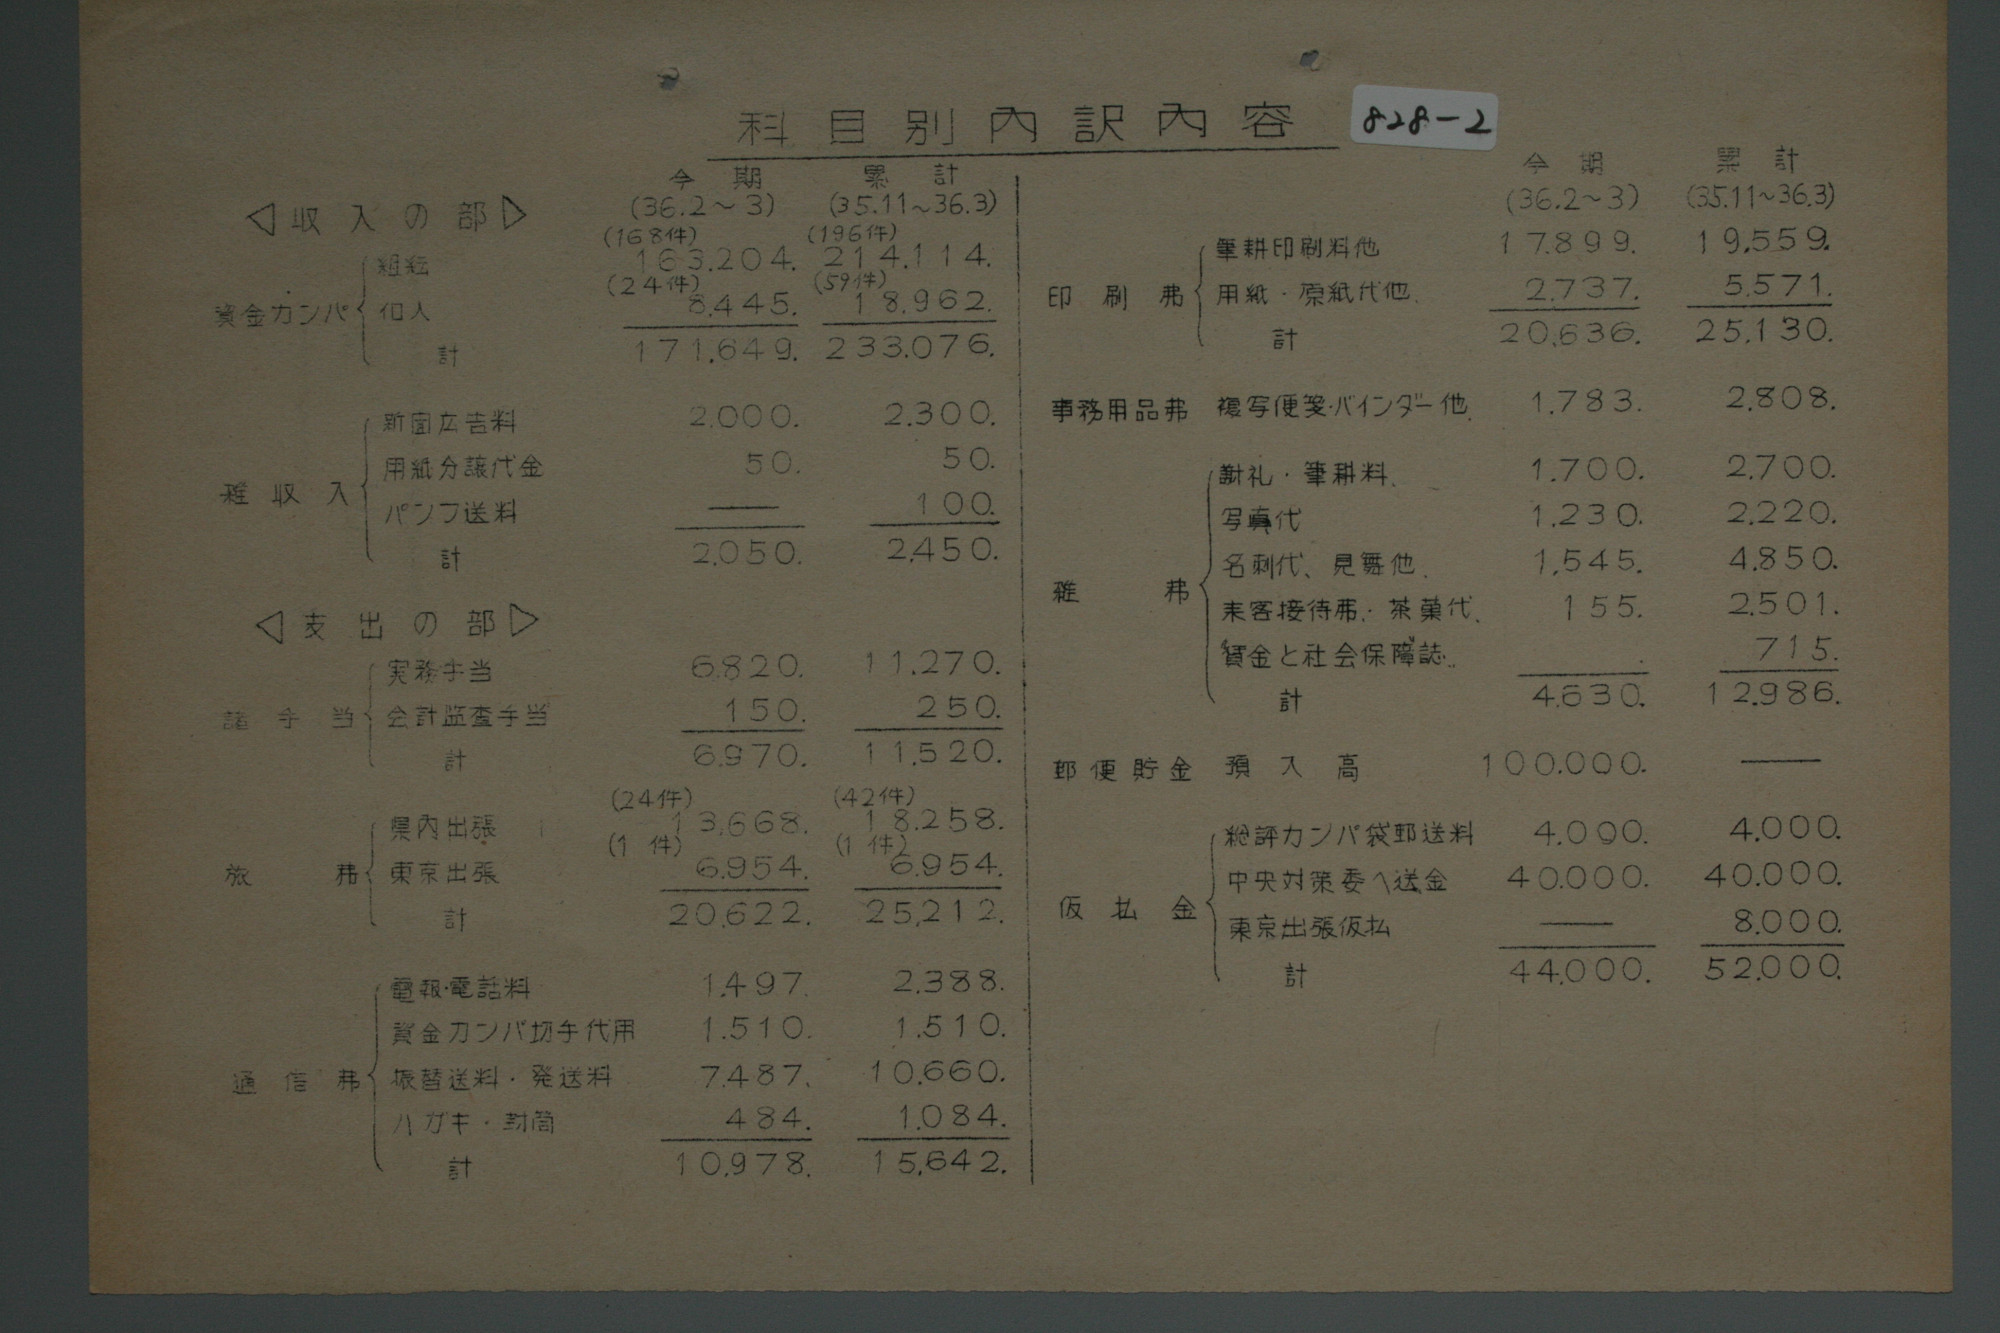 科目別内訳内容
828-2
今期 累計
◁収入の部▷ (36.2~3) (35.11~36.3)
(168件) (196件)
組織 163.204. 214.114.
(24件) (59件)
資金カンパ 個人 8.445. 18.962.
計 171.649. 233.076.
新聞広告料 2.000. 2.300.
用紙分譲代金 50. 50.
雑収入 パンフ送料 — 100.
計 2.050. 2.450.
◁支出の部▷
実務手当 6.820. 11.270.
諸手当 会計監査手当 150. 250.
計 6.970. 11.520.
(24件) (42件)
県内出張 13.668. 18.258.
(1件) (1件)
旅弗 東京出張 6.954. 6.954.
計 20.622. 25.212.
電報・電話料 1.497. 2.388.
資金カンパ切手代用 1.510. 1.510.
通信弗 振替送料・発送料 7.487. 10.660.
ハガキ・封筒 484. 1.084.
計 10.978. 15.642.
今期 累計
(36.2~3) (35.11~36.3)
筆耕印刷料他 17.899. 19.559.
印刷弗 用紙・原紙代他. 2.737. 5.571.
計 20.636. 25.130.
事務用品弗 複写便箋・バインダー他. 1.783. 2.808.
謝礼・筆耕料. 1.700. 2.700.
写真代 1.230. 2.220.
名刺代、見舞他. 1.545. 4.850.
雑弗 来客接待弗・茶菓代. 155. 2.501.
"賃金と社会保障誌" 715.
計 4.630. 12.986.
郵便貯金 預入高 100.000. —
総評カンパ袋郵送料 4.000. 4.000.
中央対策委へ送金 40.000. 40.000.
仮払金 東京出張仮払 — 8.000.
計 44.000. 52.000.